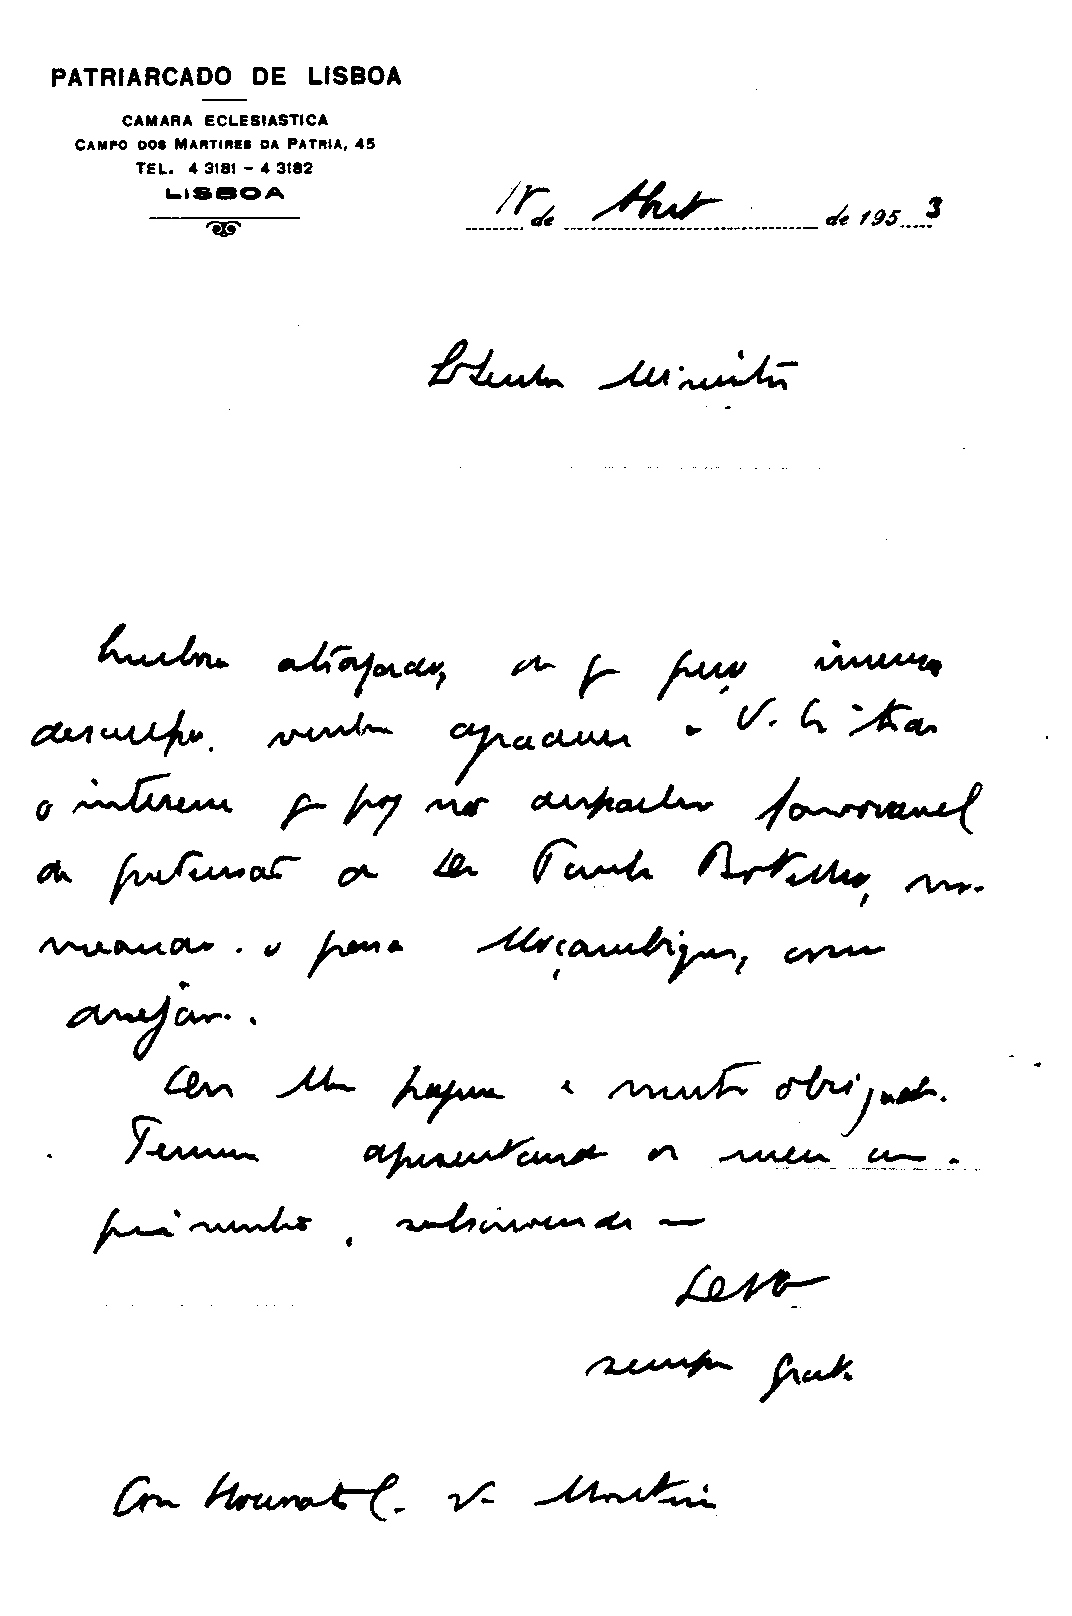 PATRIARCADO DE LISBOA
CAMARA ECLESIASTICA
CAMPO DOS MARTIRES DA PATRIA, 45
TEL. 4 3181 - 4 3182
LISBOA
de Abril de 1953
Ministro
Embora atrasado, de q peço imensa
desculpa, venho agradecer a V.
o interesse q pôs no despacho favoravel
da pretensão do Botelho, no-
meando-o para Moçambique, como
desejava.
Deus lhe pague e muito obrigado.
Termino apresentando os meus cum-
primentos, subscrevendo-me
sempre grato